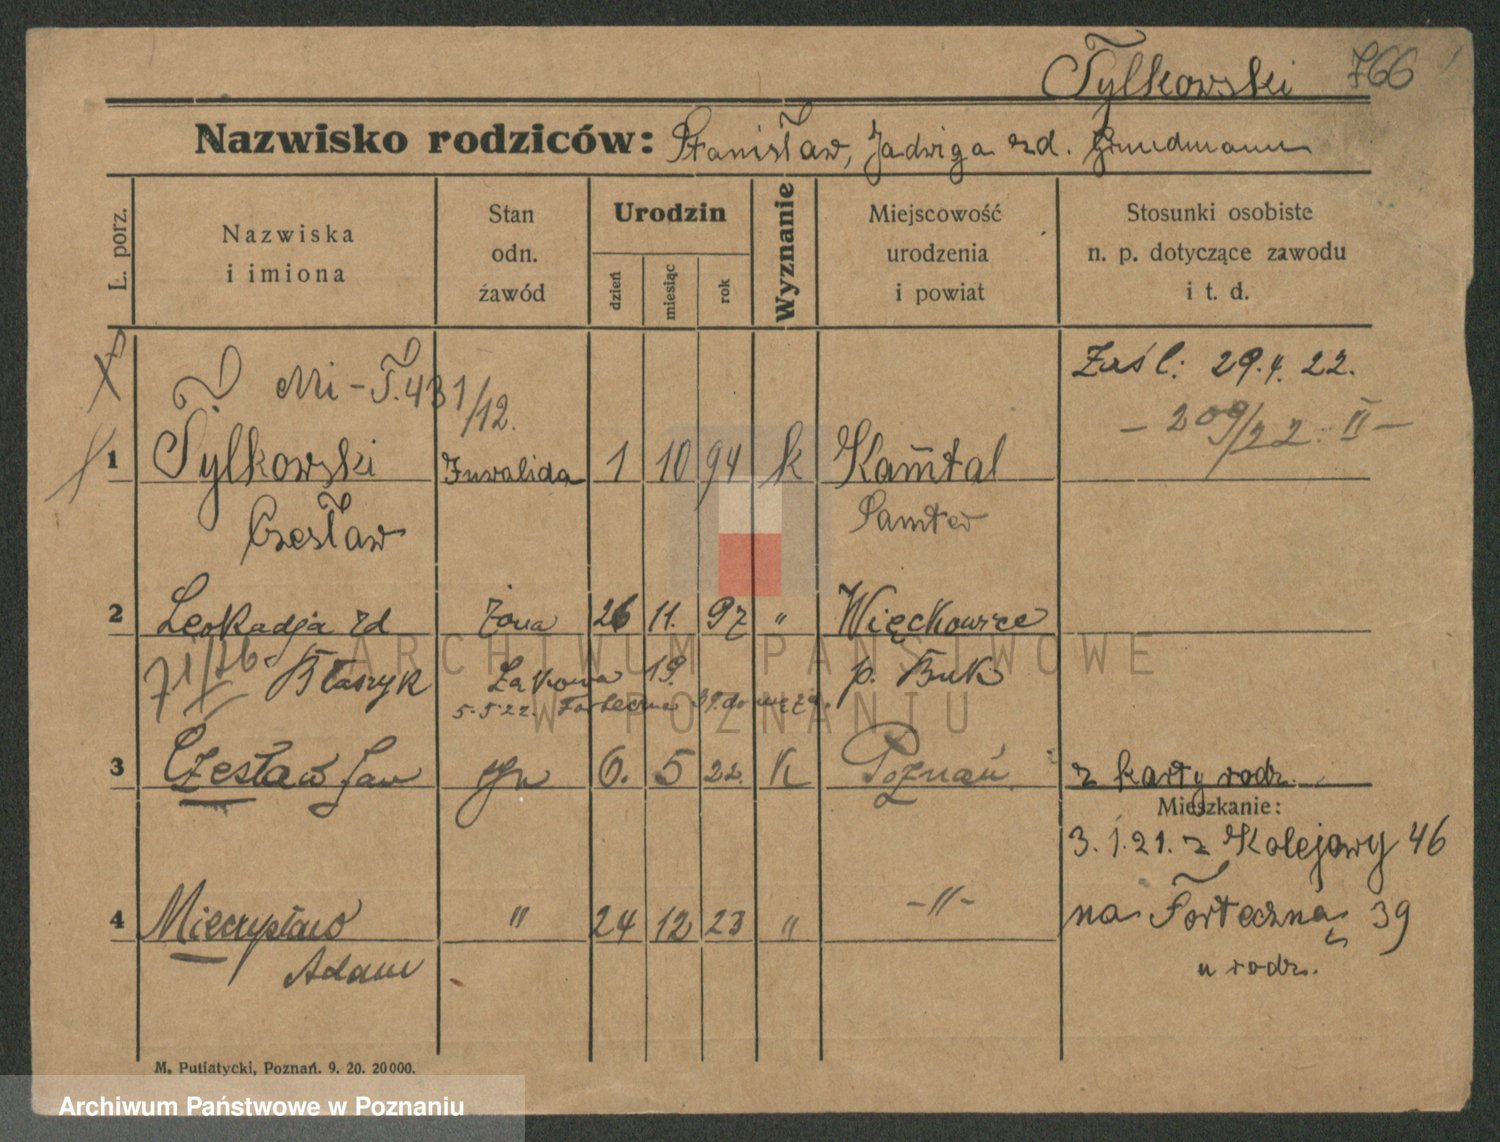 Tylkowski 766
Nazwisko rodziców: Stanisław, Jadwiga zd. Grundmann
L. porz.
Nazwiska
i imiona
Stan
odn.
zawód
Urodzin
dzień
miesiąc
rok
Wyznanie
Miejscowość
urodzenia
i powiat
Stosunki osobiste
n. p. dotyczące zawodu
i t. d.
Mi-T. 431/12.
Zaśl: 29.4.22.
- 209/22 II -
1 Tylkowski Inwalida 1 10 94 k Kamtal
Czesław Samter
2 Leokadja zd żona 26 11. 97 " Więckowice
71/26 Błaszyk Łąkowa 19. p. Buk
5.5.22. Forteczna 39. do męża.
3 Czesław Jan syn 6. 5 22. K Poznań z karty rodz.
Mieszkanie:
3.1.21. z Kolejowy 46
4 Mieczysław " 24 12 23 " -"- na Forteczną 39
Adam u rodz.
M. Putiatycki, Poznań. 9. 20. 20000.
ARCHIWUM PAŃSTWOWE
W POZNANIU
Archiwum Państwowe w Poznaniu